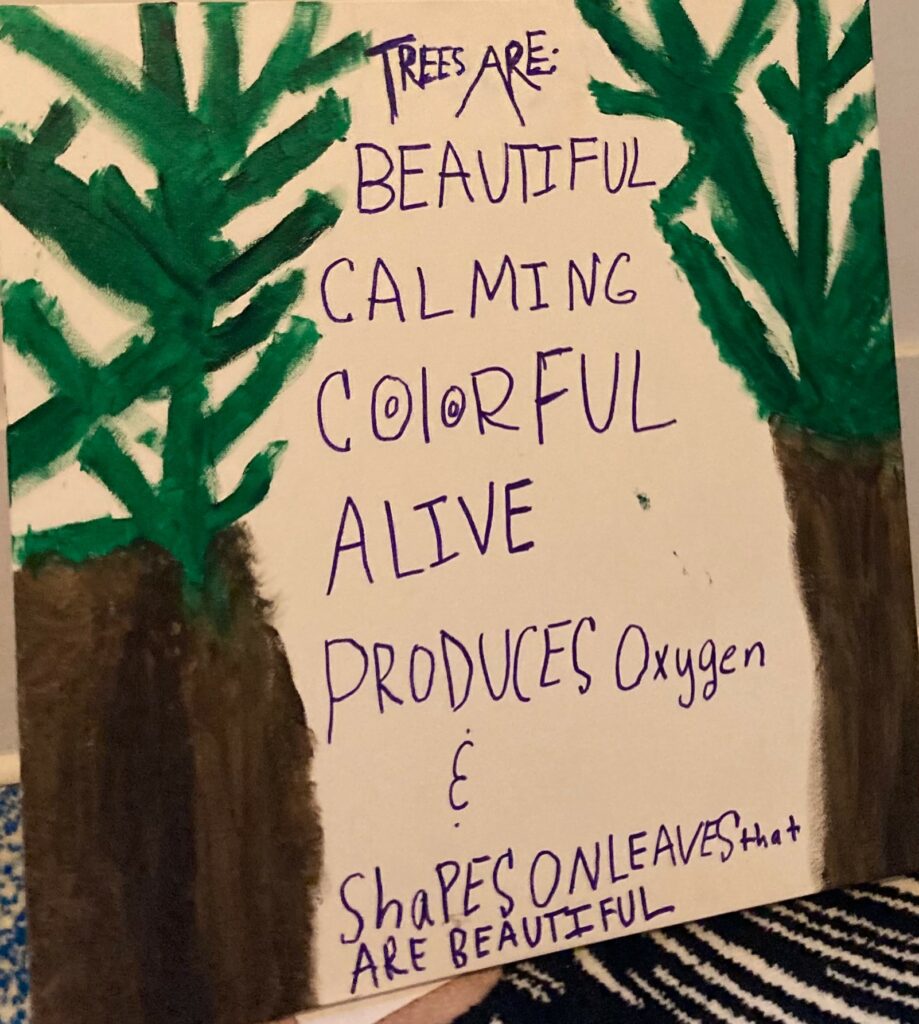 TREES ARE:
BEAUTIFUL
CALMING
COlORFUL
ALIVE
PRODUCES Oxygen
&
ShaPES ON LEAVES that
ARE BEAUTIFUL